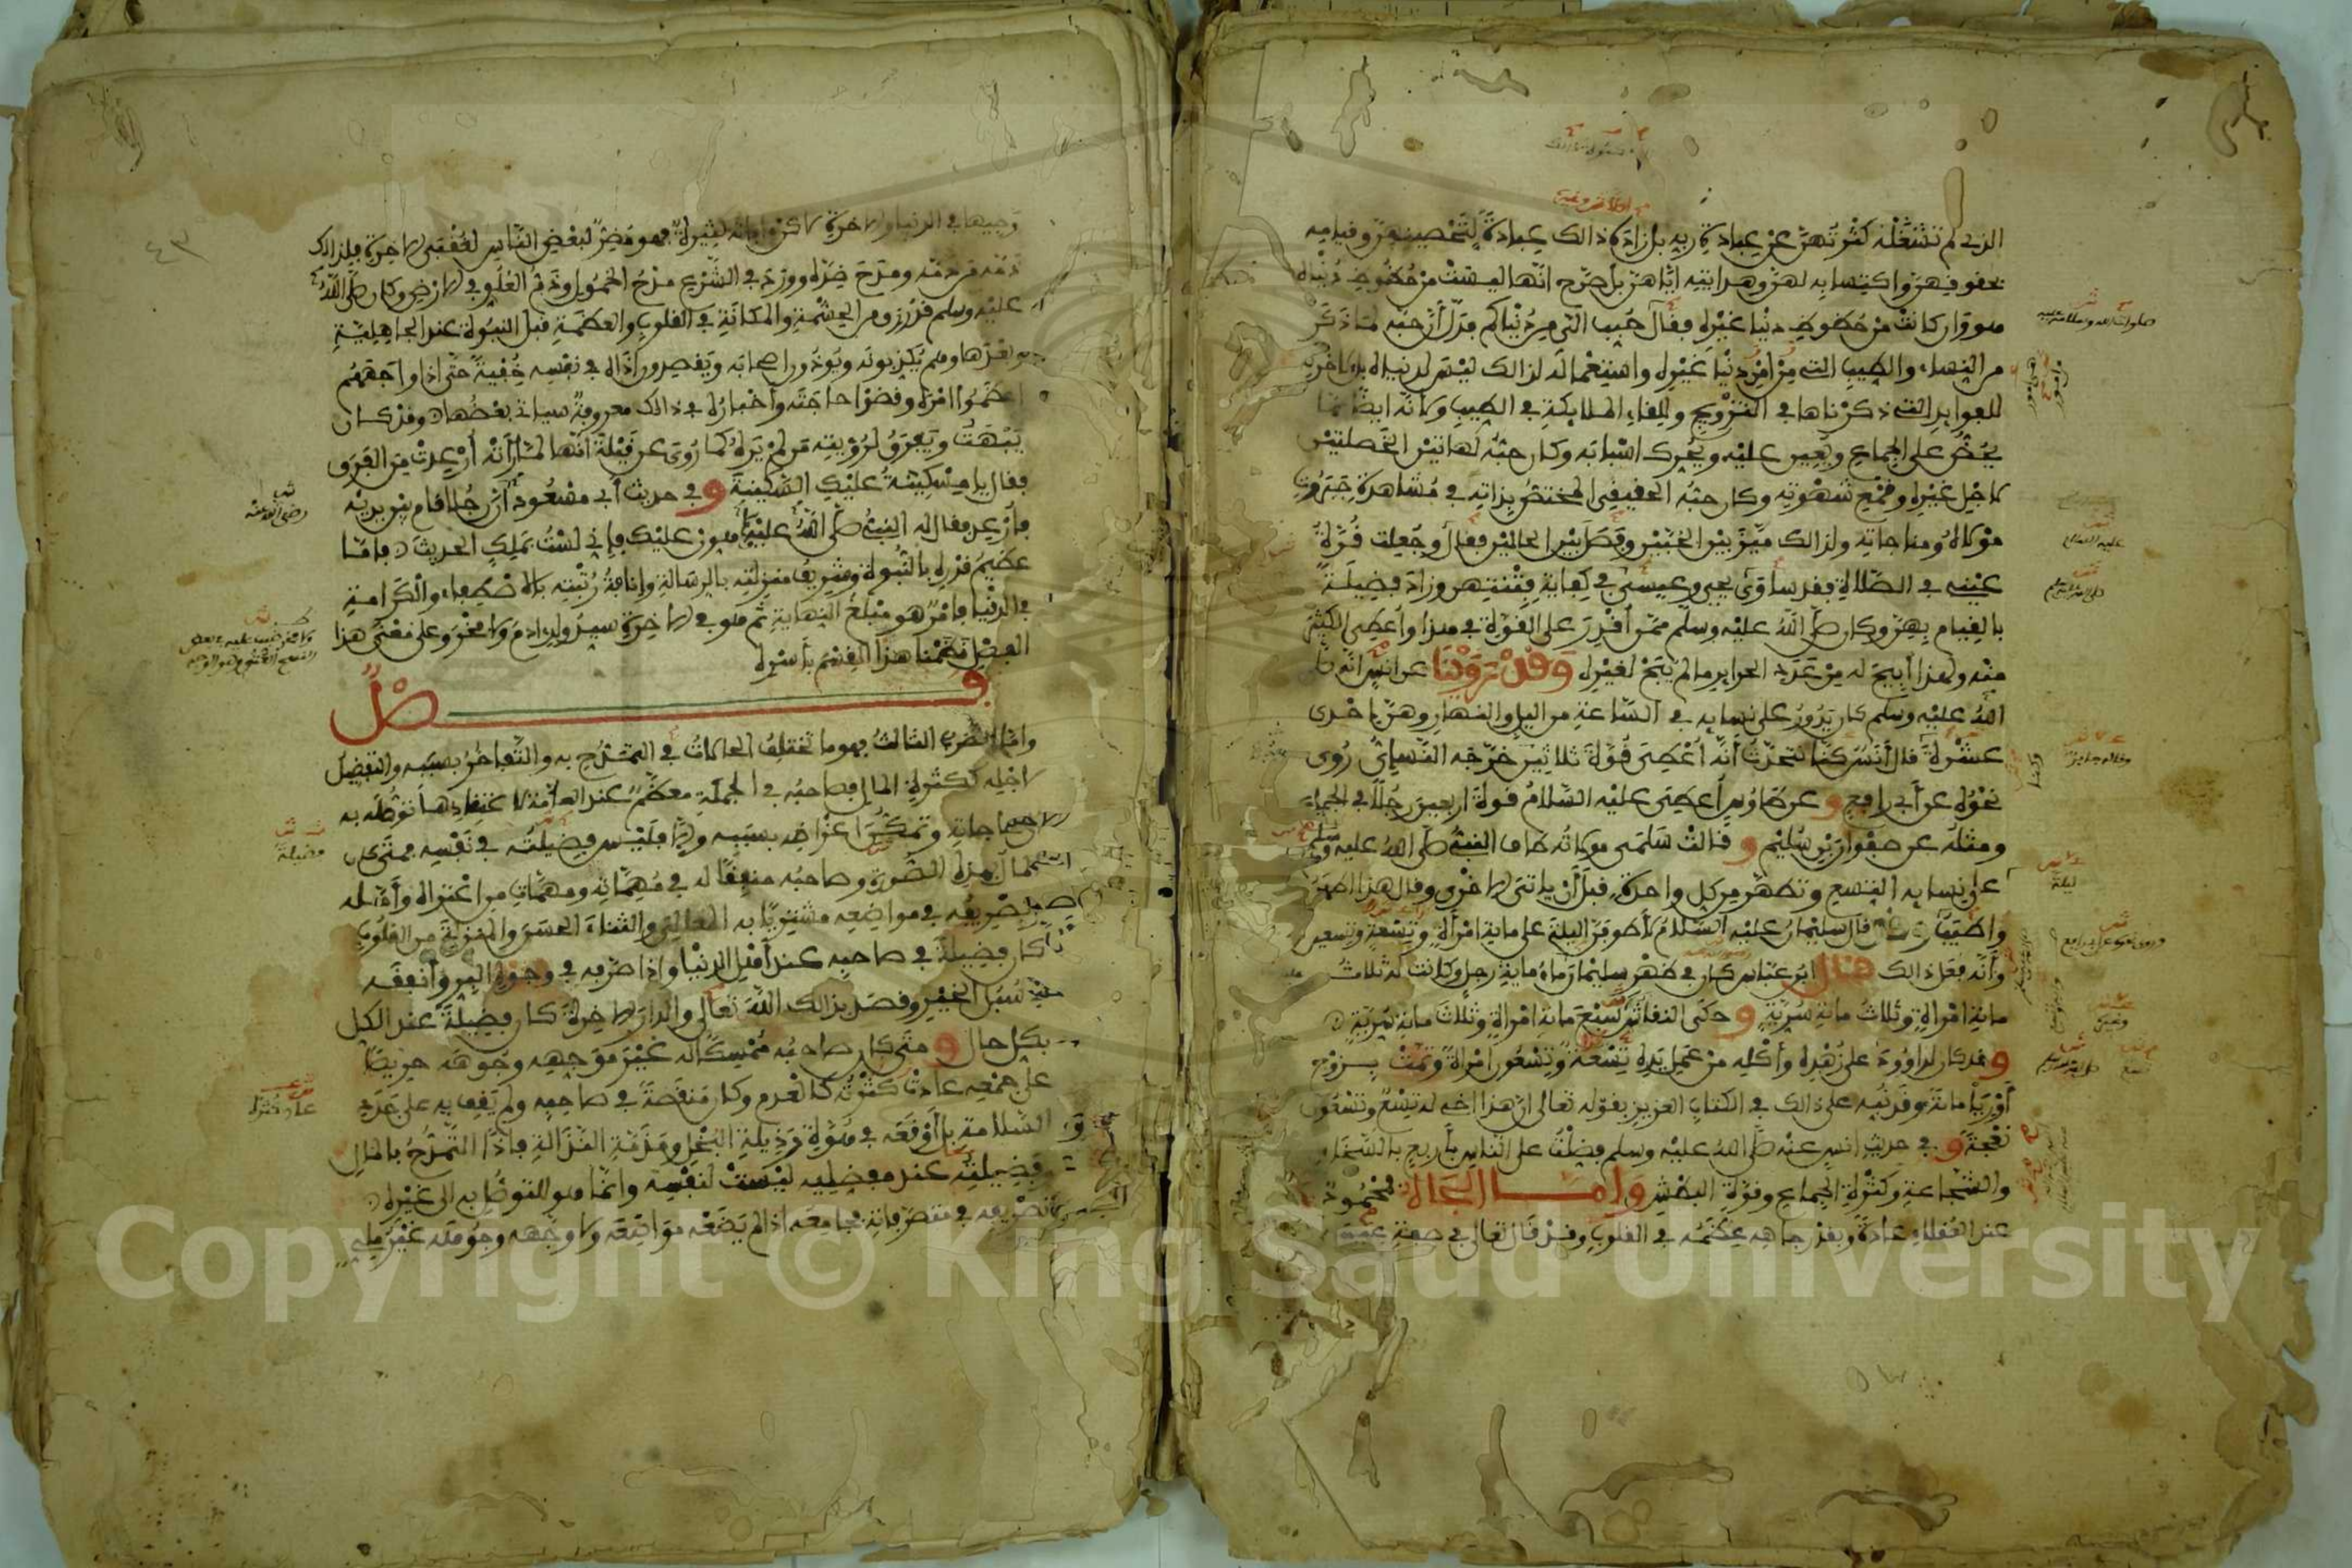 الذى لم تشغله كثرتهن عن عبادة ربه بل زاده ذالك عبادة لتحصينهن وقيامه
بحقوقهن واكتسابه لهن وهدايته اياهن بل صرح انها ليست من حظوظ دنياه
هو وان كانت من حظوظ دنيا غيره فقال حبب الى من دنياكم فدل ان حبه لما ذكر
من النساء والطيب الذى من امر دنيا غيره واستعماله لذالك ليس لدنياه بل لاخرته
للفوايد التى ذكرناها فى التزويج وللقاء الملايكة فى الطيب ولانه ايضا مما
يحض على الجماع ويعين عليه ويحرك اسبابه وكان حبه لهاتين الخصلتين
لاجل غيره وقمع شهوته وكان حبه الحقيقى المختص بذاته فى مشاهدة جبروت
مولاه ومناجاته ولذالك ميز بين الحبين وفصل بين الحالين فقال وجعلت قرة
عينى فى الصلاة فقد ساوى يحيى وعيسى فى كفاية فتنتهن وزاد فضيلة
بالقيام بهن وكان صلى الله عليه وسلم ممن اقدر على القوة فى هذا واعطى الكثير
منه ولهذا ابيح له من عدد الحراير ما لم يبح لغيره وقد روينا عن انس انه
الله عليه وسلم كان يدور على نسايه فى الساعة من اليل والنهار وهن احدى
عشرة قال انس كنا نتحدث انه اعطى قوة ثلاثين خرجه النسائى روى
نحوه عن ابى رافع وعن طاوس اعطى عليه السلام قوة اربعين رجلا فى الجماع
ومثله عن صفوان بن سليم وقالت سلمى مولاته طاف النبى صلى الله عليه وسلم
على نسايه التسع وتطهر من كل واحدة قبل ان ياتى الاخرى وقال هذا اطهر
واطيب قال سليمان عليه السلام لاطوفن اليلة على ماية امراة وتسعة وتسعين
وانه فعل ذالك قال ابن عباس كان فى ظهر سليمان ماء ماية رجل وكانت له ثلاث
ماية امراة وثلاث ماية سرية وحكى النقاش سبع ماية امراة وثلاث ماية سرية
وقد كان لداوود على زهده واكله من عمل يده تسعة وتسعون امراة وتمت بزوج
اوريا ماية وقد نبه على ذالك فى الكتاب العزيز بقوله تعالى ان هذا اخى له تسع وتسعون
نعجة وفى حديث انس عنه صلى الله عليه وسلم فضلت على الناس باربع بالسخاء
والشجاعة وكثرة الجماع وقوة البطش واما الجاه فمحمود
عند العقلاء عادة وبقدر جاهه عظمه فى القلوب وقد قال تعالى فى صفة عيسى
صلوات الله وسلامه عليه
عليه السلام
ليلة
وجيها فى الدنيا والاخرة لاكن افاته كثيرة فهو مضر لبعض الناس لعقبى الاخرة فلذالك
ذمه من ذمه ومدح ضده وورد فى الشرع مدح الخمول وذم العلو فى الارض وكان صلى الله
عليه وسلم قد رزق من الحشمة والمكانة فى القلوب والعظمة قبل النبوة عند الجاهلية
وبعدها وهم يكذبونه ويوذون اصحابه ويقصدون اذاه فى نفسه خفية حتى اذا واجههم
اعظموا امره وقضوا حاجته واخباره فى ذالك معروفة سياتى بعضها وقد كان
يبهت ويفرق لرؤيته من لم يره كما روى عن قيلة انها لما راته ارعدت من الفرق
فقال يا مسكينة عليك السكينة وفى حديث ابى مسعود ان رجلا قام بين يديه
فارعد فقال له النبى صلى الله عليه هون عليك فانى لست بملك الحديث فاما
عظيم قدره بالنبوة وشريف منزلته بالرسالة وانافة رتبته بالاصطفاء والكرامة
فى الدنيا فامر هو مبلغ النهاية ثم هو فى الاخرة سيد ولد ادم ولا فخر وعلى معنى هذا
الفصل نظمنا هذا القسم باسره
فصل
واما الضرب الثالث فهو ما تختلف الحالات فى التمدح به والتفاخر بسببه والتفضيل
لاجله ككثرة المال فصاحبه فى الجملة معظم عند العامة لاعتقادها توصله به
الى حاجاته وتمكن اغراضه بسببه والا فليس فضيلته فى نفسه فمتى كان
المال بهذه الصورة وصاحبه منفقا له فى مهماته ومهمات من اعتراه وامله
تصريفه فى مواضعه مشتريا به المعالى والثناء الحسن والمنزلة من القلوب
كان فضيلة فى صاحبه عند اهل الدنيا واذا صرفه فى وجوه البر وانفقه
فى سبل الخير وقصد بذالك الله تعالى والدار الاخرة كان فضيلة عند الكل
بكل حال ومتى كان صاحبه ممسكا له غير موجهه وجوهه حريصا
على جمعه عادت كثرته كالعدم وكان منقصة فى صاحبه ولم يقف به على جدد
السلامة بل اوقعه فى هوة رذيلة البخل ومذمة النذالة فاذا التمدح بالمال
وفضيلته عند مفضليه ليست لنفسه وانما هو للتوصل به الى غيره
وتصريفه فى متصرفاته فجامعه اذا لم يضعه مواضعه ولا وجهه وجوهه غير ملى
رضى الله عنه
فضيلة
٤٣
Copyright © King Saud University